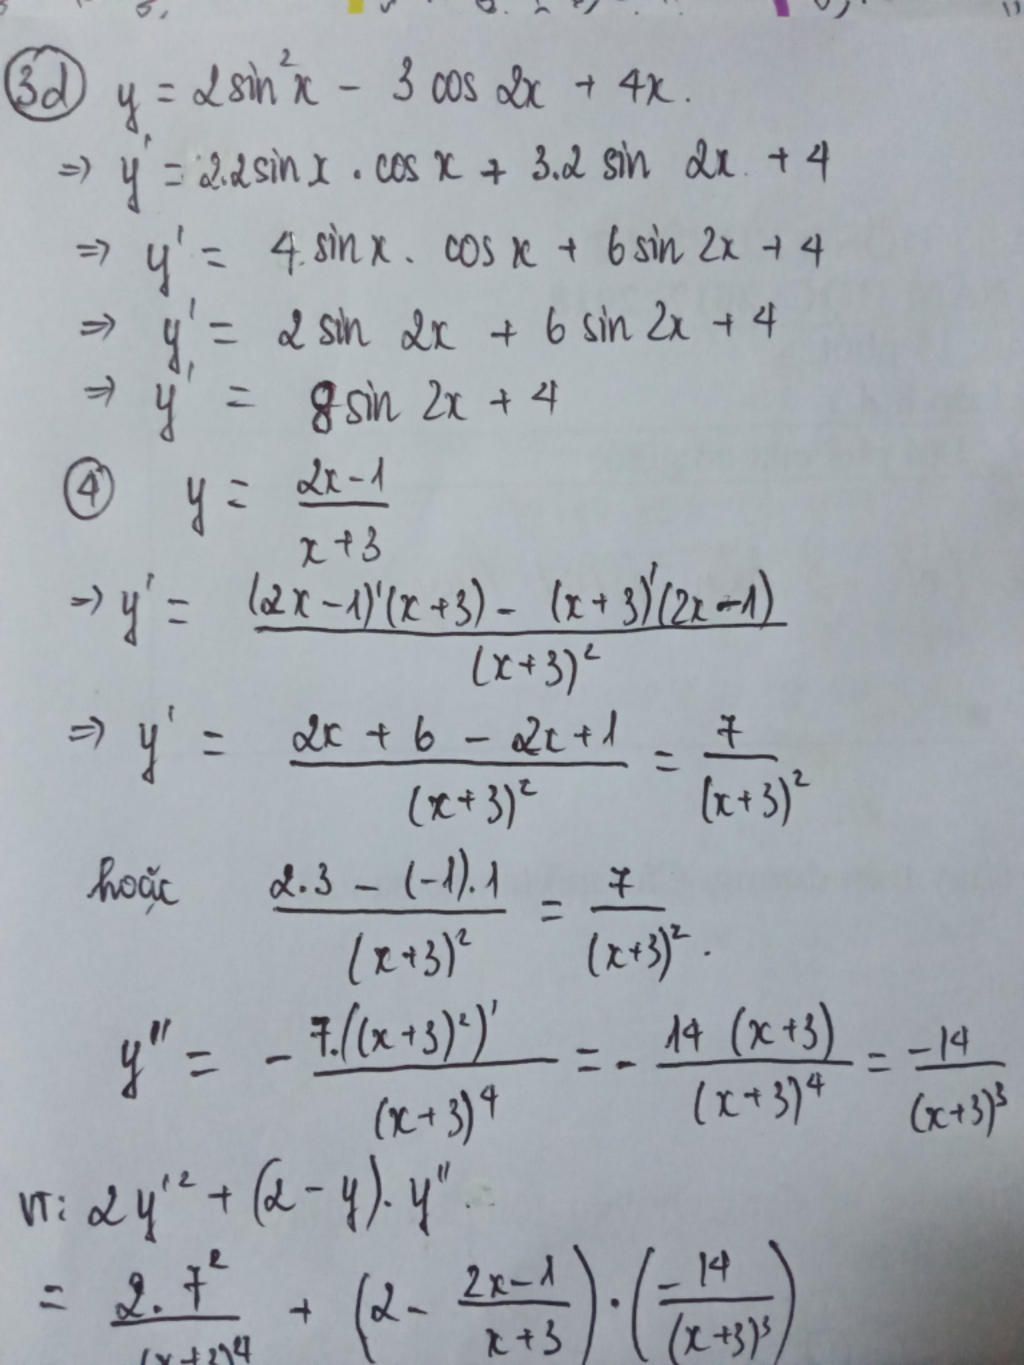 3d) y = 2sin²x - 3 cos 2x + 4x.
⇒ y' = 2.2sinx . cos x + 3.2 sin 2x + 4
⇒ y' = 4.sinx. cos x + 6sin 2x + 4
⇒ y' = 2 sin 2x + 6 sin 2x + 4
⇒ y' = 8sin 2x + 4
4) y = (2x-1)/(x+3)
⇒ y' = ((2x-1)'(x+3) - (x+3)'(2x-1))/(x+3)²
⇒ y' = (2x + 6 - 2x+1)/(x+3)² = 7/(x+3)²
hoặc (2.3 - (-1).1)/(x+3)² = 7/(x+3)².
y'' = - 7.((x+3)²)'/(x+3)⁴ = - 14 (x+3)/(x+3)⁴ = -14/(x+3)³
VT: 2y'² + (2-y). y''
= 2.7²/(x+3)⁴ + (2 - (2x-1)/(x+3)) . (-14/(x+3)³)